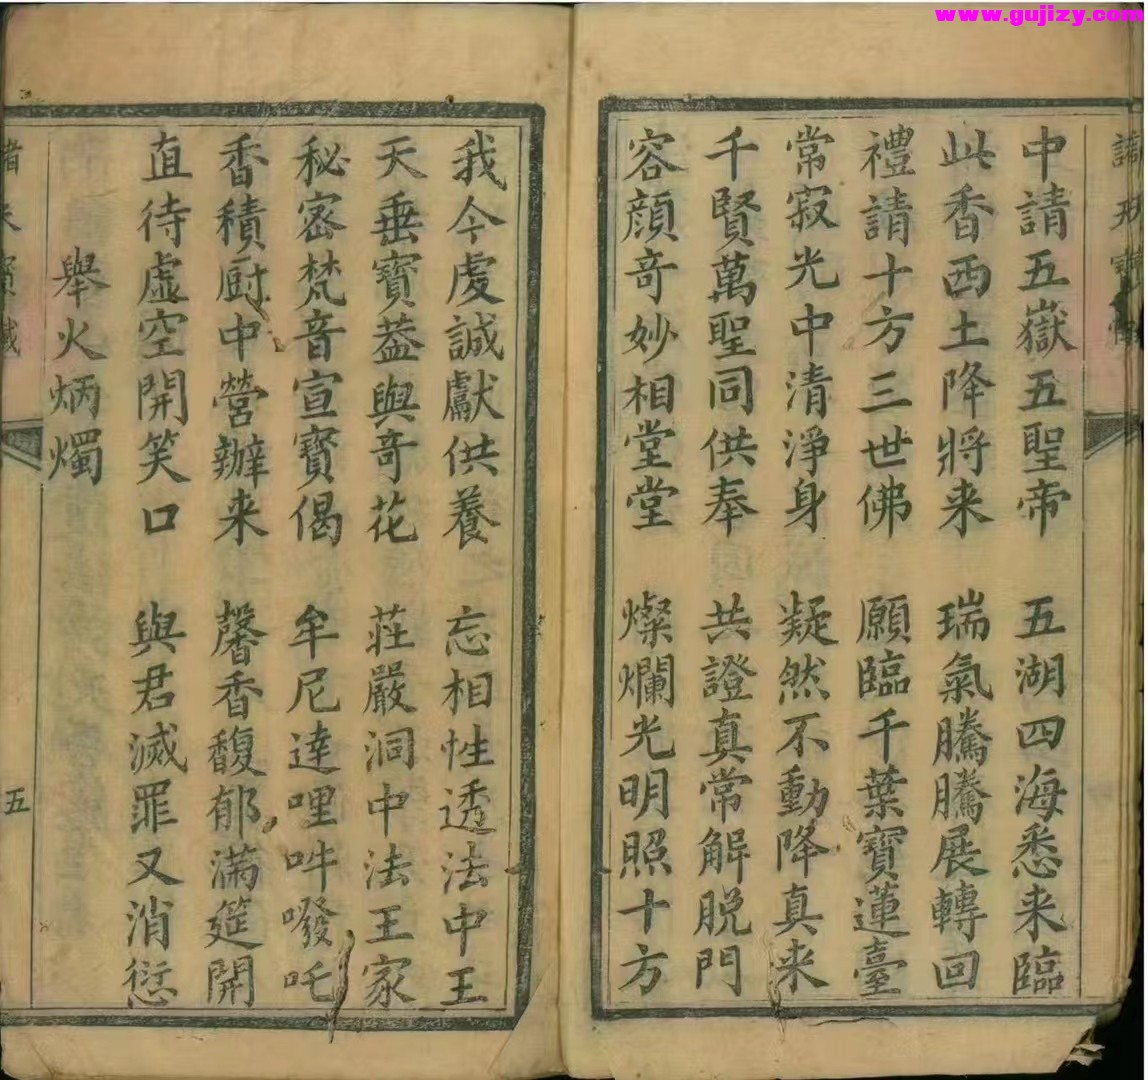 www.gujizy.com
中請五嶽五聖帝 五湖四海悉来臨
此香西土降將来 瑞氣騰騰展轉回
禮請十方三世佛 願臨千葉寶蓮臺
常寂光中清淨身 凝然不動降真来
千賢萬聖同供奉 共證真常解脱門
容顔奇妙相堂堂 燦爛光明照十方
我今虔誠獻供養 忘相性透法中王
天垂寶葢與奇花 莊嚴洞中法王家
秘密梵音宣寶偈 牟尼達哩吽㘄吒
香積厨中營辦来 馨香馥郁滿筵開
直待虛空開笑口 與君滅罪又消愆
舉火炳燭
五